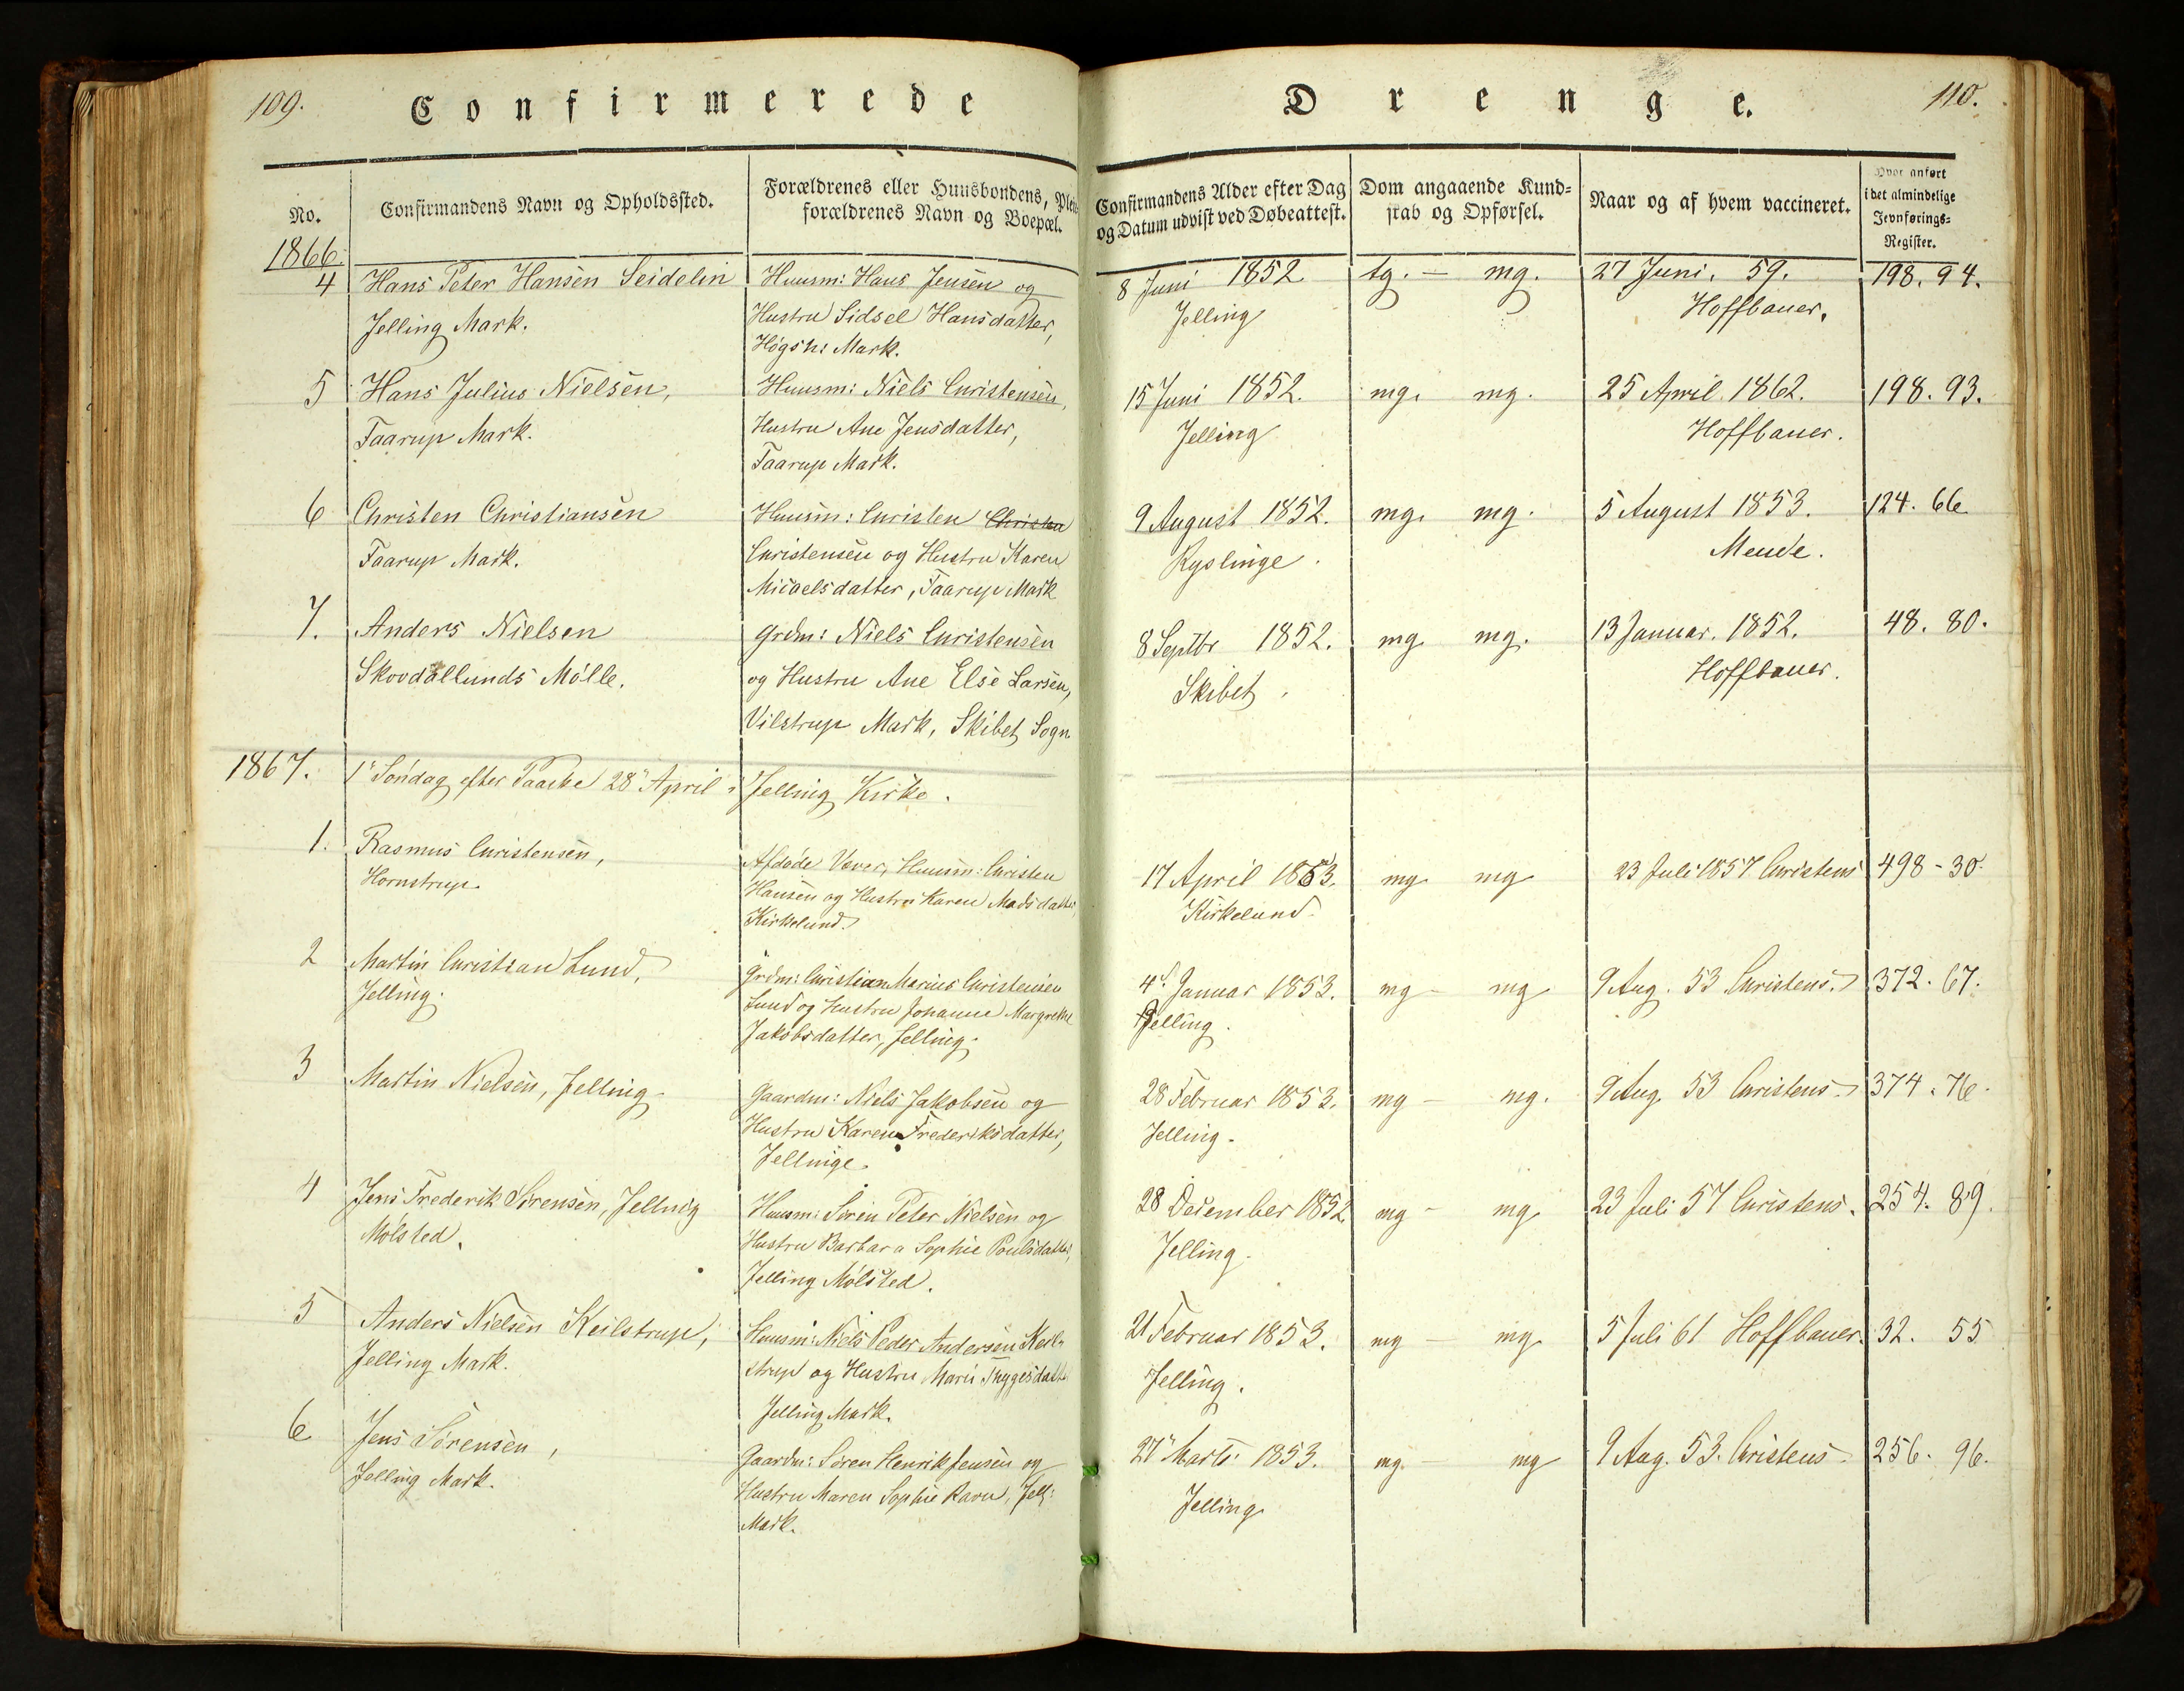 109.
Confirmerede
No.
Confirmandens Navn og Opholdssted.
Forældrenes eller Huusbondens, Pleie-
forældrenes Navn og Boepæl.
1866.
4 Hans Peter Hansen Seidelin
Jelling Mark.
Huusm: Hans Jensen og
Hustru Sidsel Hansdatter,
Høgsh: Mark.
5 Hans Julius Nielsen,
Taarup Mark.
Huusm: Niels Christensen,
Hustru Ane Jensdatter,
Taarup Mark.
6 Christen Christiansen
Taarup Mark.
Huusm: Christen Christen
Christensen og Hustru Karen
Micaelsdatter, Taarup Mark
7. Anders Nielsen
Skovdallunds Mølle.
Grdm: Niels Christensen
og Hustru Ane Else Larsen,
Vilstrup Mark, Skibet Sogn
1867. 1ste Søndag efter Paaske 28de April i Jelling Kirke.
1. Rasmus Christensen,
Hornstrup.
Afdøde Væver, Huusm: Christen
Hansen og Hustru Karen Madsdatter,
Kirkelund.
2 Martin Christian Lund,
Jelling.
Grdm: Christian Marius Christensen
Lund og Hustru Johanne Margrethe
Jakobsdatter, Jelling.
3 Martin Nielsen, Jelling
Gaardm: Niels Jakobsen og
Hustru Karen Frederiksdatter,
Jellinge.
4 Jens Frederik Sørensen, Jelling
Mølsted.
Huusm: Søren Peter Nielsen og
Hustru Barbara Sophie Poulsdatter,
Jelling Mølsted.
5 Anders Nielsen Keilstrup,
Jelling Mark.
Huusm: Niels Peder Andersen Keil-
strup og Hustru Marie Thygesdatter
Jelling Mark.
6 Jens Sørensen,
Jelling Mark.
Gaardm: Søren Henrik Jensen og
Hustru Maren Sophie Ravn, Jell:
Mark.
Drenge.
110.
Confirmandens Alder efter Dag
og Datum udviist ved Døbeattest.
Dom angaaende Kund-
skab og Opførsel.
Naar og af hvem vaccineret.
Hvor anført
i det almindelige
Jevnførings-
Register.
8 Juni 1852 tg. — mg. 27 Juni. 59. 198. 94.
Jelling Hoffbauer.
15 Juni 1852. mg. mg. 25 April 1862. 198. 93.
Jelling Hoffbauer.
9 August 1852. mg. mg. 5 August 1853. 124. 66
Ryslinge. Meude.
8 Septbr 1852. mg mg. 13 Januar. 1852. 48. 80.
Skibet. Hoffbauer.
17 April 1853. mg mg 23 Juli 1857 Christens 498-30.
Kirkelund.
4de Januar 1853. mg - mg 9 Aug. 53 Christens. 372. 67.
Jelling.
28 Februar 1853. mg — mg. 9 Aug. 53 Christens. 374. 76.
Jelling.
28 December 1852 mg - mg 23 Juli 57 Christens. 254. 89.
Jelling.
21 Februar 1853. mg — mg 5 Juli 61 Hoffbauer. 32. 55
Jelling.
27de Marts 1853. mg. — mg 9 Aug. 53. Christens 256. 96.
Jelling